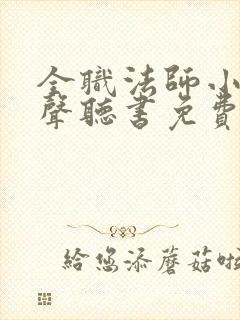 全職法師小
聲聽書免費
給您添蘑菇啦